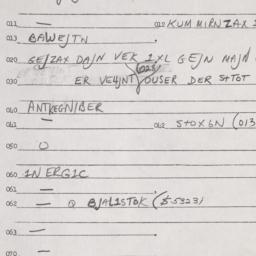 011 — 012 KUM MIRNZAX I
013 BAWEJTN
020 GEJZAX DAJN VEK 1XL GEJN MAJN
(025)
030 ER VEYJNT OUSER DER STOT
040 ANTKEGNIBER
041 — 042 STOXGN (013
050 O
060 IN ERGIC
061 —
062 — Q BJALISTOK (§ 5323)
063 —
070 —